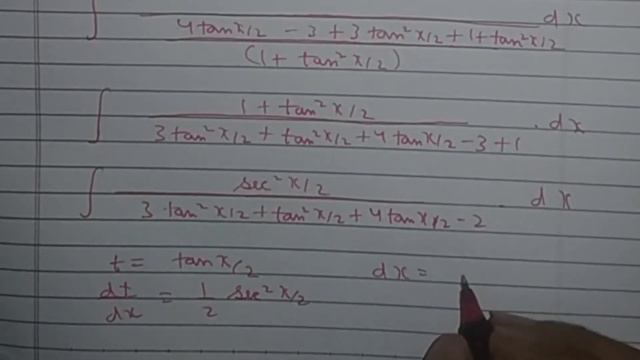 ∫ ——— dx
4tanx/2 - 3 + 3tan²x/2 + 1 + tan²x/2
(1 + tan²x/2)
∫ 1 + tan²x/2 / 3tan²x/2 + tan²x/2 + 4tanx/2 - 3 + 1 . dx
∫ sec²x/2 / 3·tan²x/2 + tan²x/2 + 4tanx/2 - 2 . dx
t = tanx/2 dx =
dt/dx = 1/2 sec²x/2